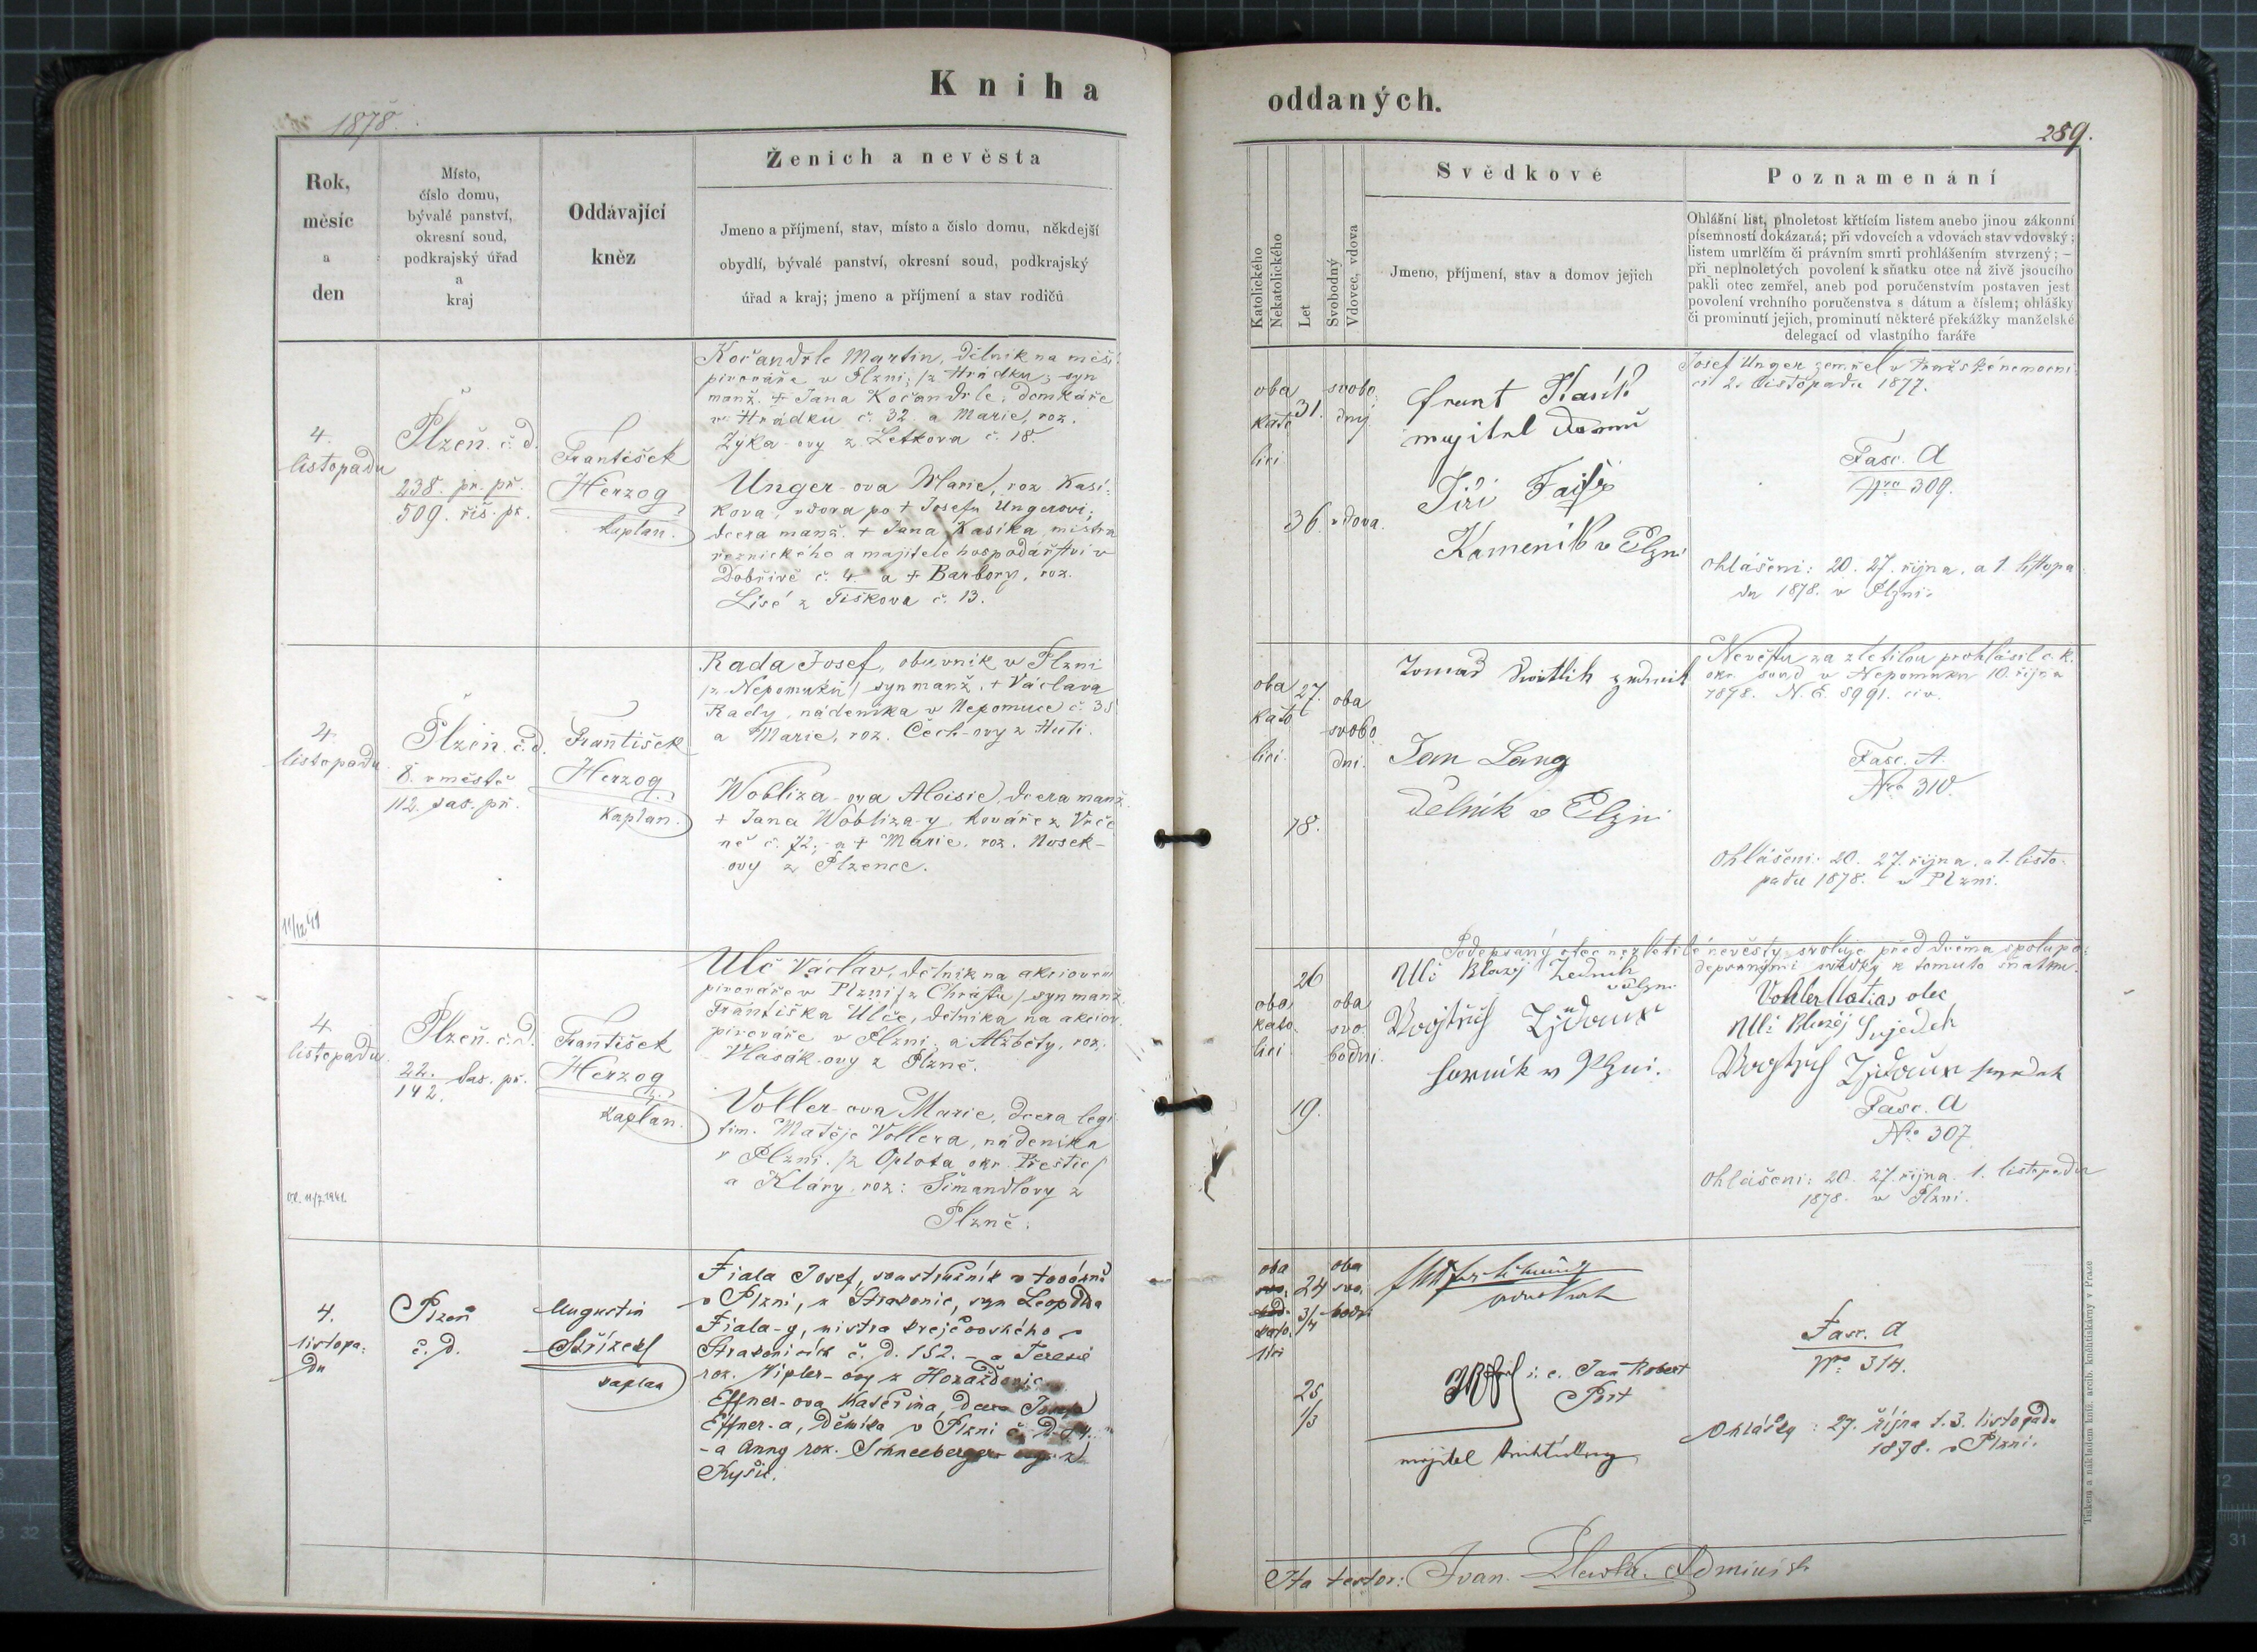 Kniha
1878.
Rok,
měsíc
a
den
Místo,
číslo domu,
bývalé panství,
okresní soud,
podkrajský úřad
a
kraj
Oddávající
kněz
Ženich a nevěsta
Jmeno a příjmení, stav, místo a číslo domu, někdejší
obydlí, bývalé panství, okresní soud, podkrajský
úřad a kraj; jmeno a příjmení a stav rodičů
4.
listopadu
Plzeň. č. d.
238. pr. př.
509. říš. př.
František
Herzog
kaplan.
Kočandrle Martin, dělník na měšť.
pivováře v Plzni; /z Hrádku; syn
manž. + Jana Kočandrle, domkáře
v Hrádku č. 32. a Marie, roz.
Zýka-ovy z Letkova č. 18.
Unger-ova Marie, roz. Kasí-
kova, vdova po + Josefu Ungerovi;
dcera manž. + Jana Kasíka, mistra
řeznického a majitele hospodářství v
Dobřívě č. 4. a + Barbory, roz.
Lisé z Tiškova č. 13.
4.
listopadu
Plzeň. č. d.
8. v městě
112. sas. př.
František
Herzog
kaplan.
Rada Josef, obuvník v Plzni
/z Nepomuku/ syn manž. + Václava
Rady, nádeníka v Nepomuce č. 38
a Marie, roz. Čech-ovy z Huti.
Wobliza-ova Aloisie, dcera manž.
+ Jana Wobliza-y, kováře z Vrče
ně č. 72., a + Marie, roz. Nosek-
ovy z Plzence.
4.
listopadu
Plzeň. č. d.
22.
142. sas. př.
František
Herzog
kaplan.
Ulč Václav, dělník na akciovém
pivováře v Plzni /z Chrástu/ syn manž.
Františka Ulče, dělníka na akciov.
pivováře v Plzni, a Alžběty, roz.
Vlasák-ovy z Plzně.
Voller-ova Marie, dcera legi-
tim. Matěje Vollera, nádeníka
v Plzni. /z Oplota, okr. Přestic/
a Kláry, roz: Šimandlovy z
Plzně.
4.
listopa-
du
Plzeň
č. d.
Augustin
kaplan
Fiala Josef, soustružník v továrně
v Plzni, z Strakonic, syn Leopolda
Fiala-y, mistra krejčovského v
Strakonicích č. d. 152. - a Terezie
roz. Nipler-ovy z Horažďovic
Effner-ova Kateřina, dcera Josefa
Effner-a, dělníka v Plzni č. D.
- a Anny roz. Schneeberger-ovy z
Kyšic.
oddaných.
289.
Katolického
Nekatolického
Let
Svobodný
Vdovec, vdova
Svědkové
Jmeno, příjmení, stav a domov jejich
Poznamenání
Ohlášní list, plnoletost křtícím listem anebo jinou zákonní
písemností dokázaná; při vdovcích a vdovách stav vdovský
listem umrlčím či právním smrti prohlášením stvrzený; –
při neplnoletých povolení k sňatku otce na živě jsoucího
pakli otec zemřel, aneb pod poručenstvím postaven jest
povolení vrchního poručenstva s dátum a číslem; ohlášky
či prominutí jejich, prominutí některé překážky manželské
delegací od vlastního faráře
oba
kato
líci
31.
svobo
dný
36
vdova.
majitel domu
Jiří
Kameník v Plzni
Josef Unger zemřel v Pražské nemocni-
ci 2. listopadu 1877.
Fasc. A
Nro 309.
Ohlášeni: 20. 27. října, a 1. listopa
du 1878. v Plzni.
oba
kato
líci
27.
oba
svobo
dni.
18.
zedník
Jan Lang
Dělník v Plzni
Nevěstu za zletilou prohlásil c. k.
okr. soud v Nepomuku 10. října
1878. N. E. 5991. civ.
Fasc. A.
Nro 310.
Ohlášeni: 20. 27. října, a 1. listo-
padu 1878. v Plzni.
oba
kato
líci
26
oba
svo-
bodni.
19.
Ulč Blazej Zedník
v Plzni
v Plzni.
Podepsaný otec nezletilé nevěsty svoluje před dvěma spolupo-
depsanými svědky k tomuto sňatku.
Voller Matias otec
Ulč Blazej Svjedek
Fasc. A
Nro 307.
Ohlášeni: 20. 27. října 1. listopadu
1878. v Plzni.
oba
kato-
líci
24
3/4
oba
svo-
bodn.
25
1/3
i. e. Jan Robert
Port
majitel
Fasc. A
Nro 314.
Ohlášky: 27. října 1. 3. listopadu
1878. v Plzni.
Ita testor:
Tiskem a nákladem kníž. arcib. knihtiskárny v Praze